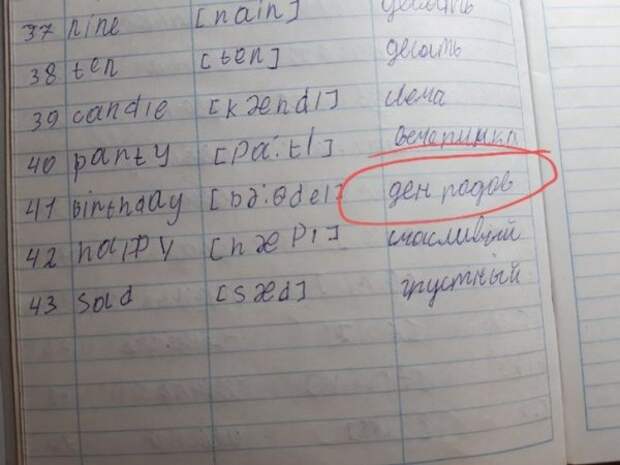 37 nine [nain] десять
38 ten [ten] десять
39 candie [kændl] свеча
40 party [pa:tI] вечеринка
41 Birthday [bə:θdeI] ден радов
42 happy [hæpi] счасливый
43 sad [sæd] грустный